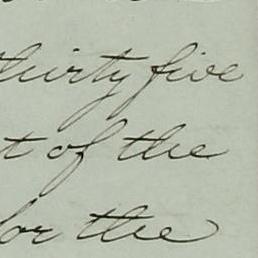 thirty five
t of the
for the